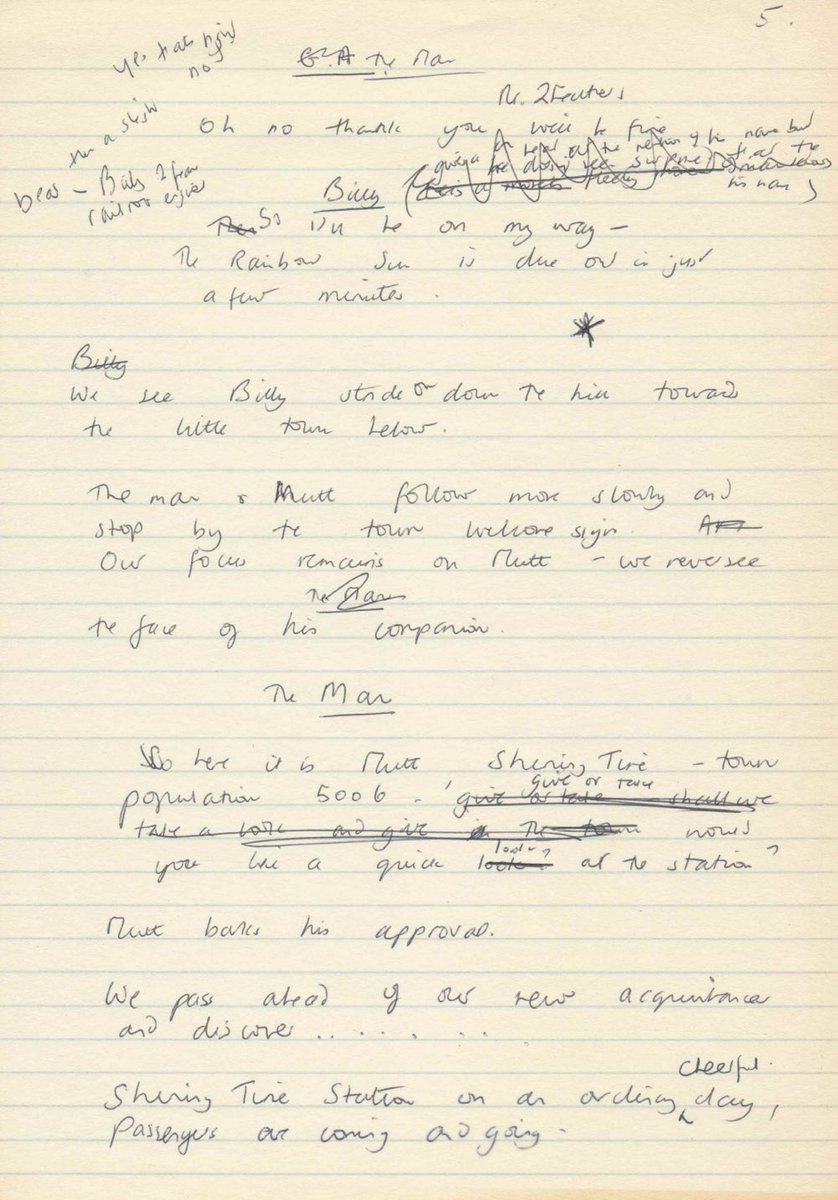 5.
yes thats right
no
The Man
Mr. 2Feathers
Oh no thank you we'll be fine
then a slight
bear - Billy 2 from
railroad engines
Billy
his name)
So I'll be on my way -
The Rainbow Sun is due in just
a few minutes.
Billy
We see Billy stride on down the hill toward
the little town below.
The man & Mutt follow more slowly and
stop by the town welcome sign.
Our focus remains on Mutt - we never see
The Man
the face of his companion.
The Man
So here it is Mutt Shining Time - town
give or take
population 5006 - give or take - shall we
take a look and give the town would
look?
you like a quick look? at the station?
Mutt barks his approval.
We pass ahead of our new acquaintances
and discover........
cheerful
Shining Time Station on an ordinary day,
Passengers are coming and going -